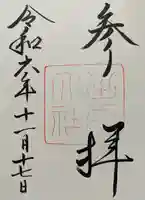 参拝
令和六年十一月十七日